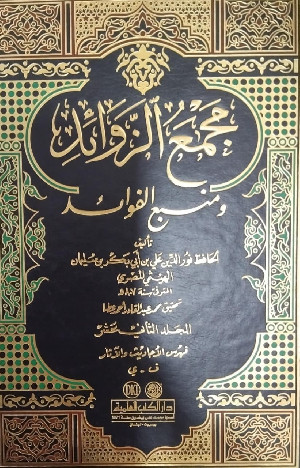 مجمع الزوائد
ومنبع الفوائد
تأليف
الحافظ نور الدين علي بن أبي بكر بن سليمان
الهيثمي المصري
المتوفى سنة ٨٠٧ هـ
تحقيق محمد عبد القادر أحمد عطا
المجلد الثاني عشر
فهرس الأحاديث والآثار
ف - ي
دار الكتب العلمية
بيروت - لبنان